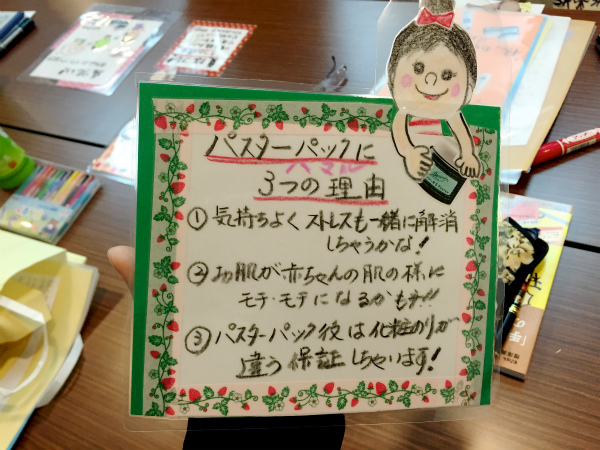 パスターパックに
ハマル
3つの理由
① 気持ちよくストレスも一緒に解消
しちゃうかな!
② お肌が赤ちゃんの肌の様に
モチ・モチになるかもヲ!!
③ パスターパック後は化粧のりが
違う保証しちゃいます!